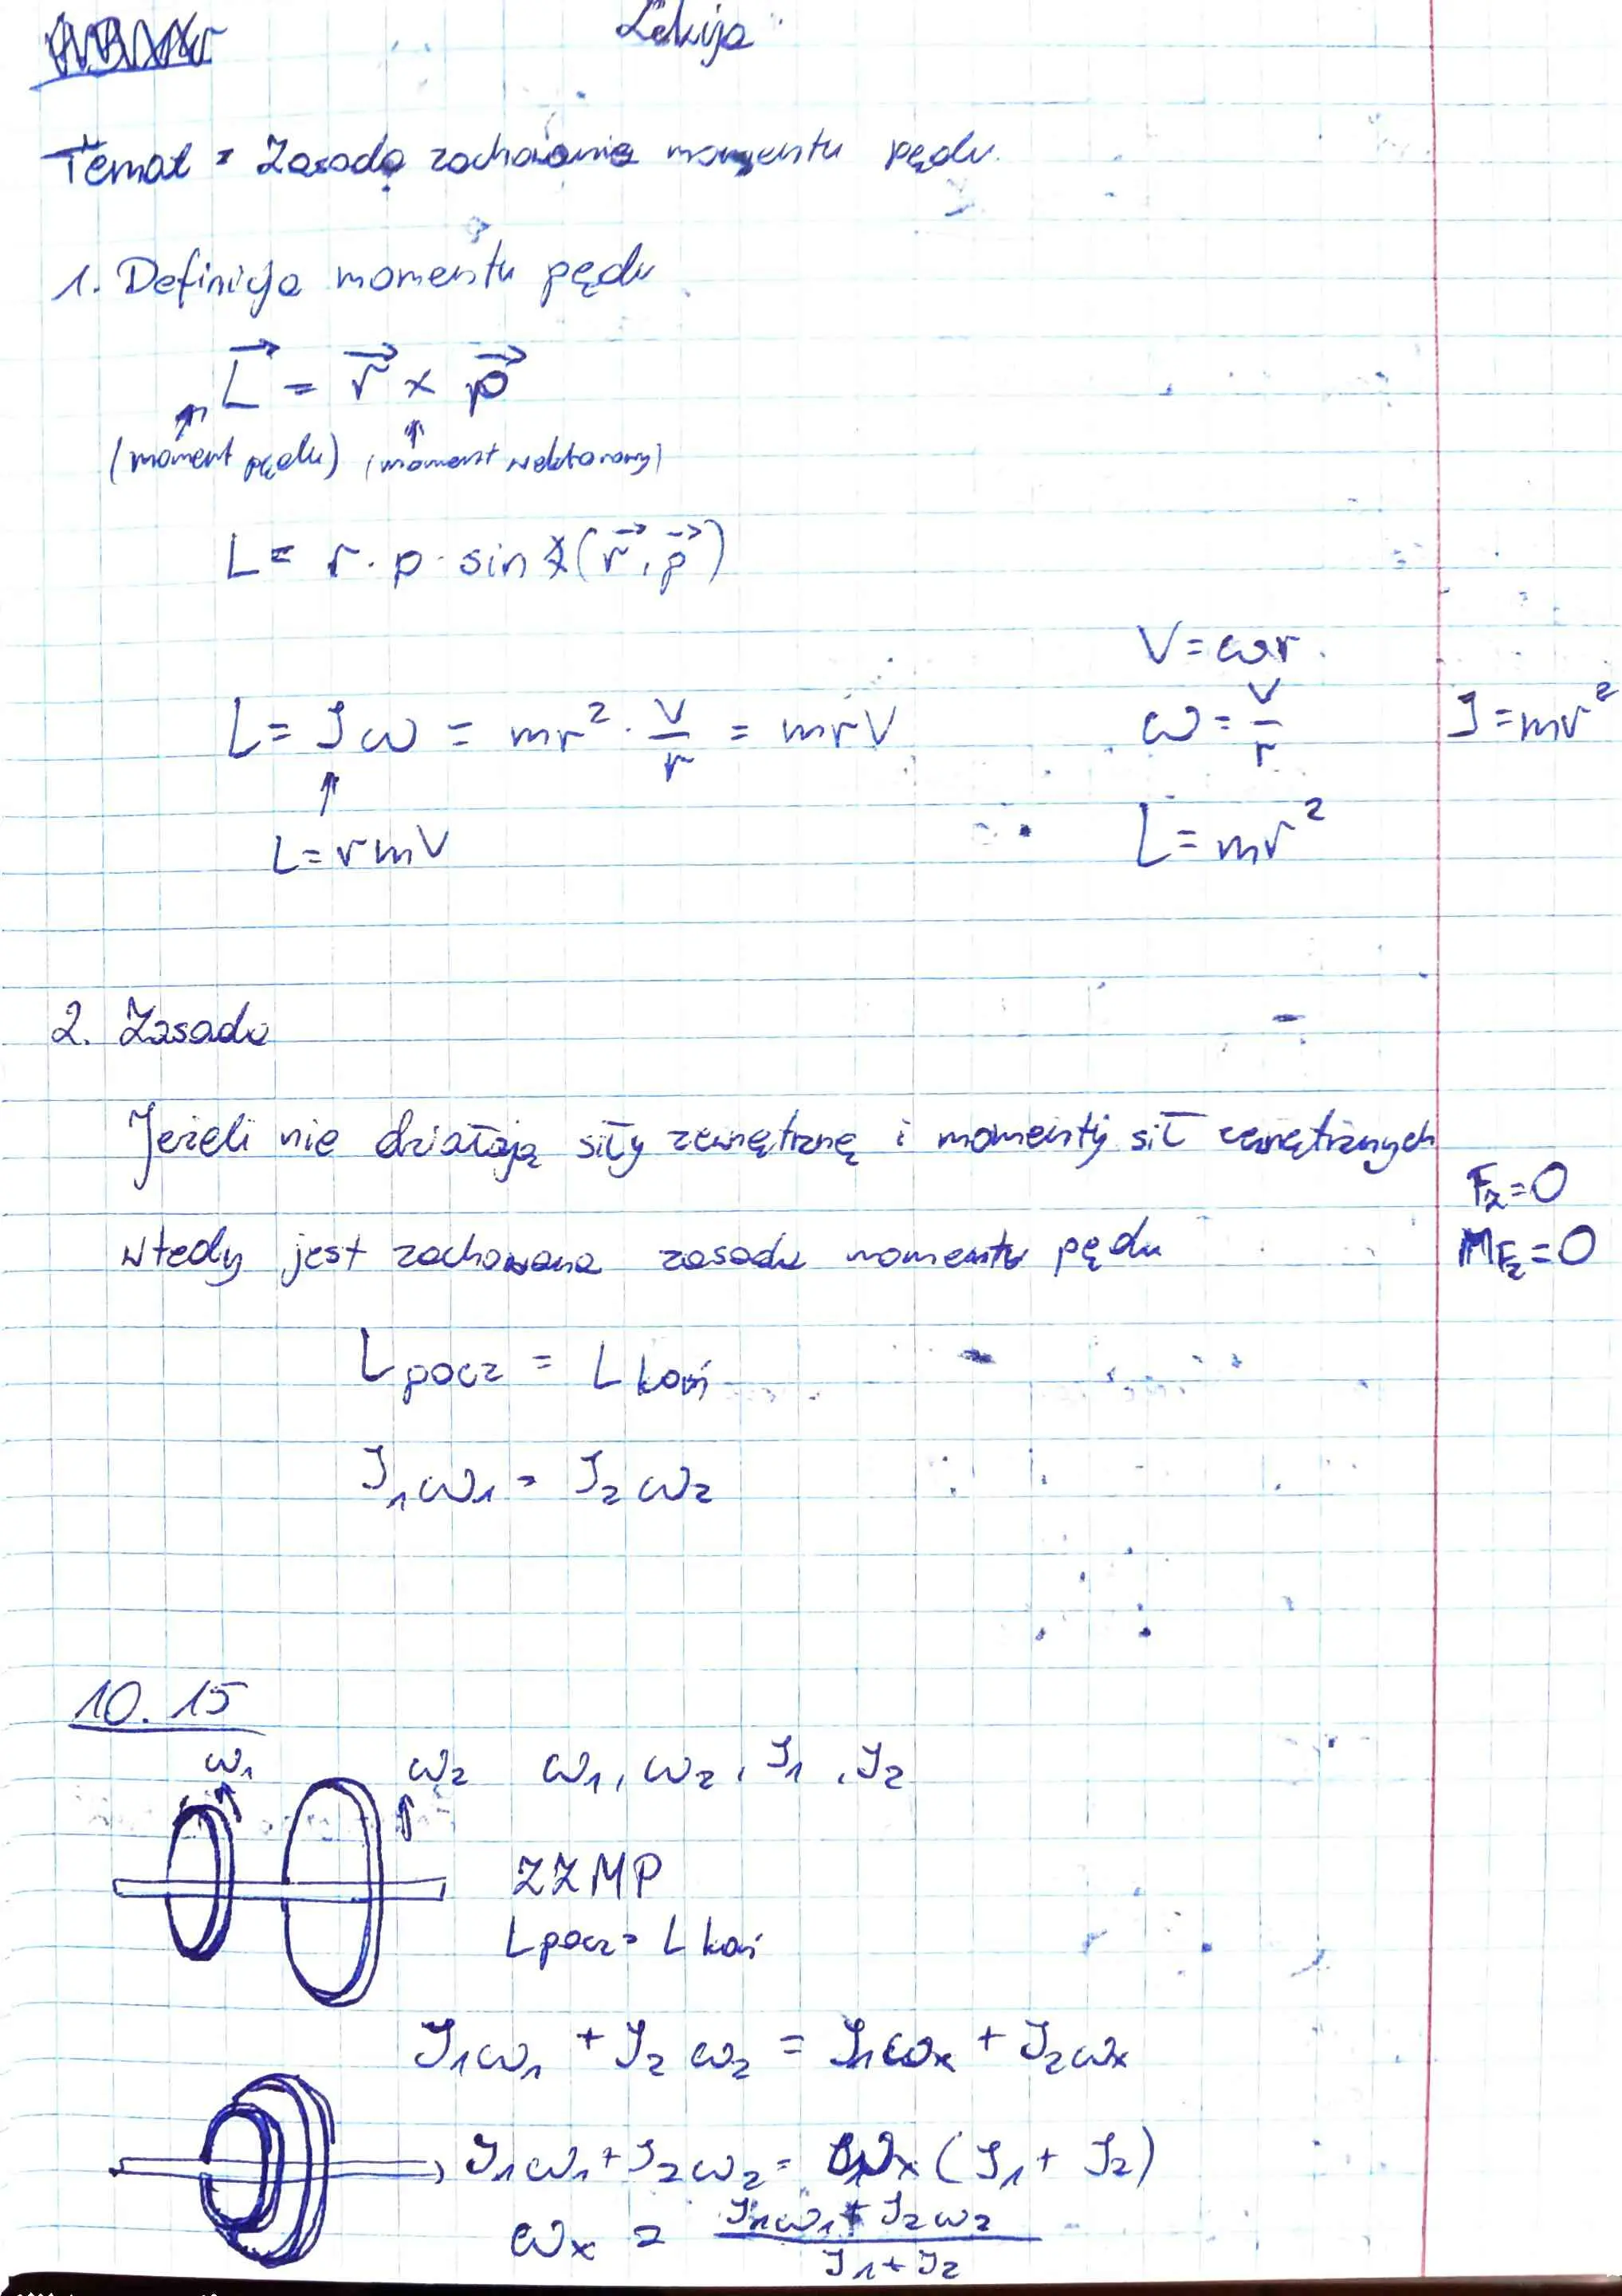 Lekcja
Temat: Zasada zachowania momentu pędu.
1. Definicja momentu pędu
L⃗ = r⃗ × p⃗
(moment pędu) (moment wektorowy)
L = r · p · sin ∡(r⃗, p⃗)
V = ωr
L = Jω = mr² · V/r = mrV
ω = V/r
J = mr²
L = rmV
L = mr²
2. Zasada
Jeżeli nie działają siły zewnętrznę i momenty sił zewnętrznych
F_z = 0
wtedy jest zachowana zasada momentu pędu
M_Fz = 0
L pocz = L koń
J₁ω₁ = J₂ω₂
10.15
ω₁ ω₂ ω₁, ω₂, J₁, J₂
ZZMP
L pocz = L koń
J₁ω₁ + J₂ω₂ = J₁ωx + J₂ωx
J₁ω₁ + J₂ω₂ = ωx (J₁ + J₂)
ωx = (J₁ω₁ + J₂ω₂)/(J₁ + J₂)